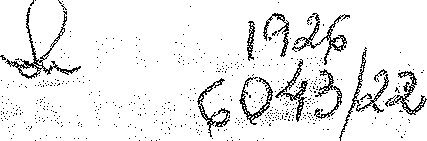 1926
6043/22